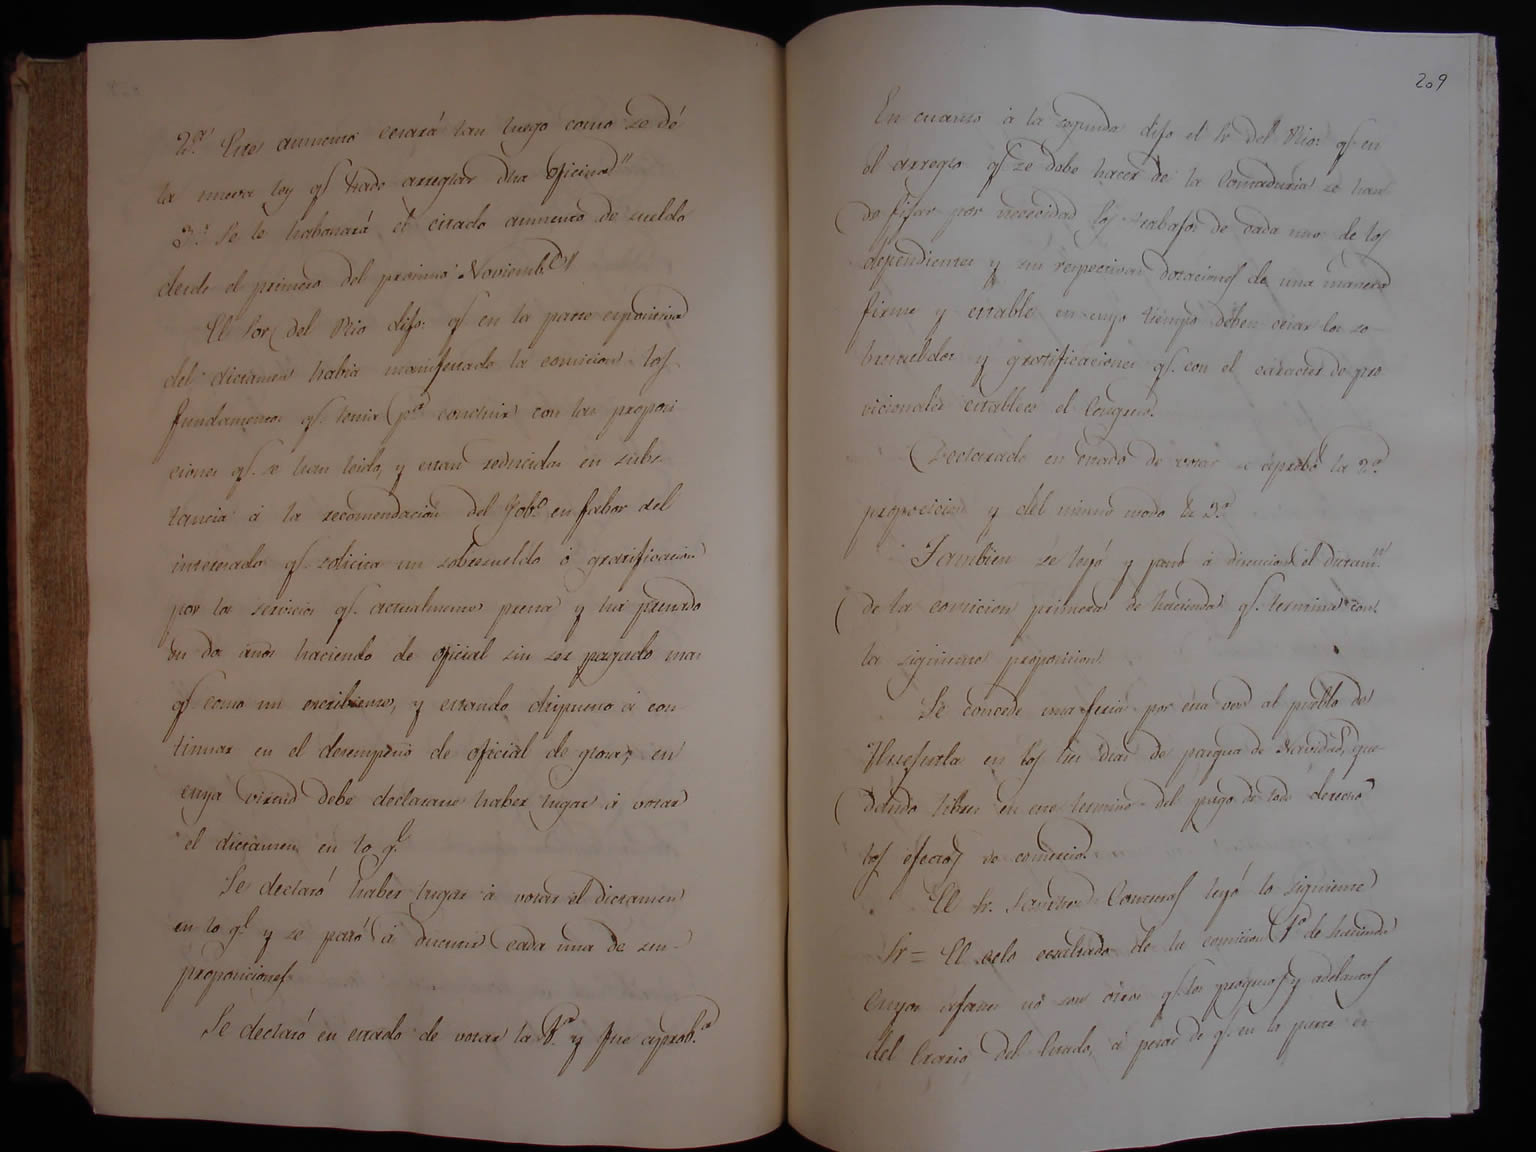 2.ª Este aumento cesará tan luego como se dé
la nueva ley q.e trate arreglar dha oficina"
3.ª Se le habonará el citado aumento de sueldo
desde el primero del procsimo Noviemb.e"
El Sor. del Rio dijo: q.e en la parte espocitiva
del dictamen habia manifestado la comicion los
fundamentos q.e tenia p.a concluir con las propoci
ciones q.e se han leido, y estan reducidas en subs-
tancia á la recomendacion del Gob.o en fabor del
interesado q.e solicita un sobresueldo ó gratificacion
por los servicios q.e actualmente presta y há prestado
en dos años haciendo de oficial sin ser pagado mas
q.e como un escribiente, y estando dispuesto á con
tinuar en el desempeño de oficial de glosa; en
cuya virtud debe declararse haber lugar á votar
el dictamen en lo g.l
Se declaró haber lugar á votar el dictamen
en lo g.l y se pasó á discutir cada una de sus
proposiciones.
Se declaró en estado de votar la 1.ª y fue aprob.da
209
En cuanto á la segunda dijo el Sr. del Rio: q.e en
el arreglo q.e se debe hacer de la Contaduria se han
de fijar por necesidad los trabajos de cada uno de los
dependientes y sus respectivas dotaciones de una manera
firme y estable en cuyo tiempo deben cesar los so
bresueldos y gratificaciones q.e con el caracter de pro
vicionales establece el Congreso.
Declarado en estado de votar se aprobó la 2.ª
proposicion y del mismo modo la 3.ª
Tambien se leyó y puso á discucion el dictam.n
de la comicion primera de hacienda q.e termina con
la siguiente proposicion.
Se concede una feria por esta vez al pueblo de
Huejutla en los tres dias de pasqua de Navidad, que-
dando libres en este termino del pago de todo derecho
los efectos de comercio.
El Sr. Sanchez Contreras leyó lo siguiente
Sr = El celo ecsaltado de la comicion 1.ª de hacienda
cuyos afanes nó son otros q.e los progresos y adelantos
del Erario del Estado, á pesar de q.e en lo parte es